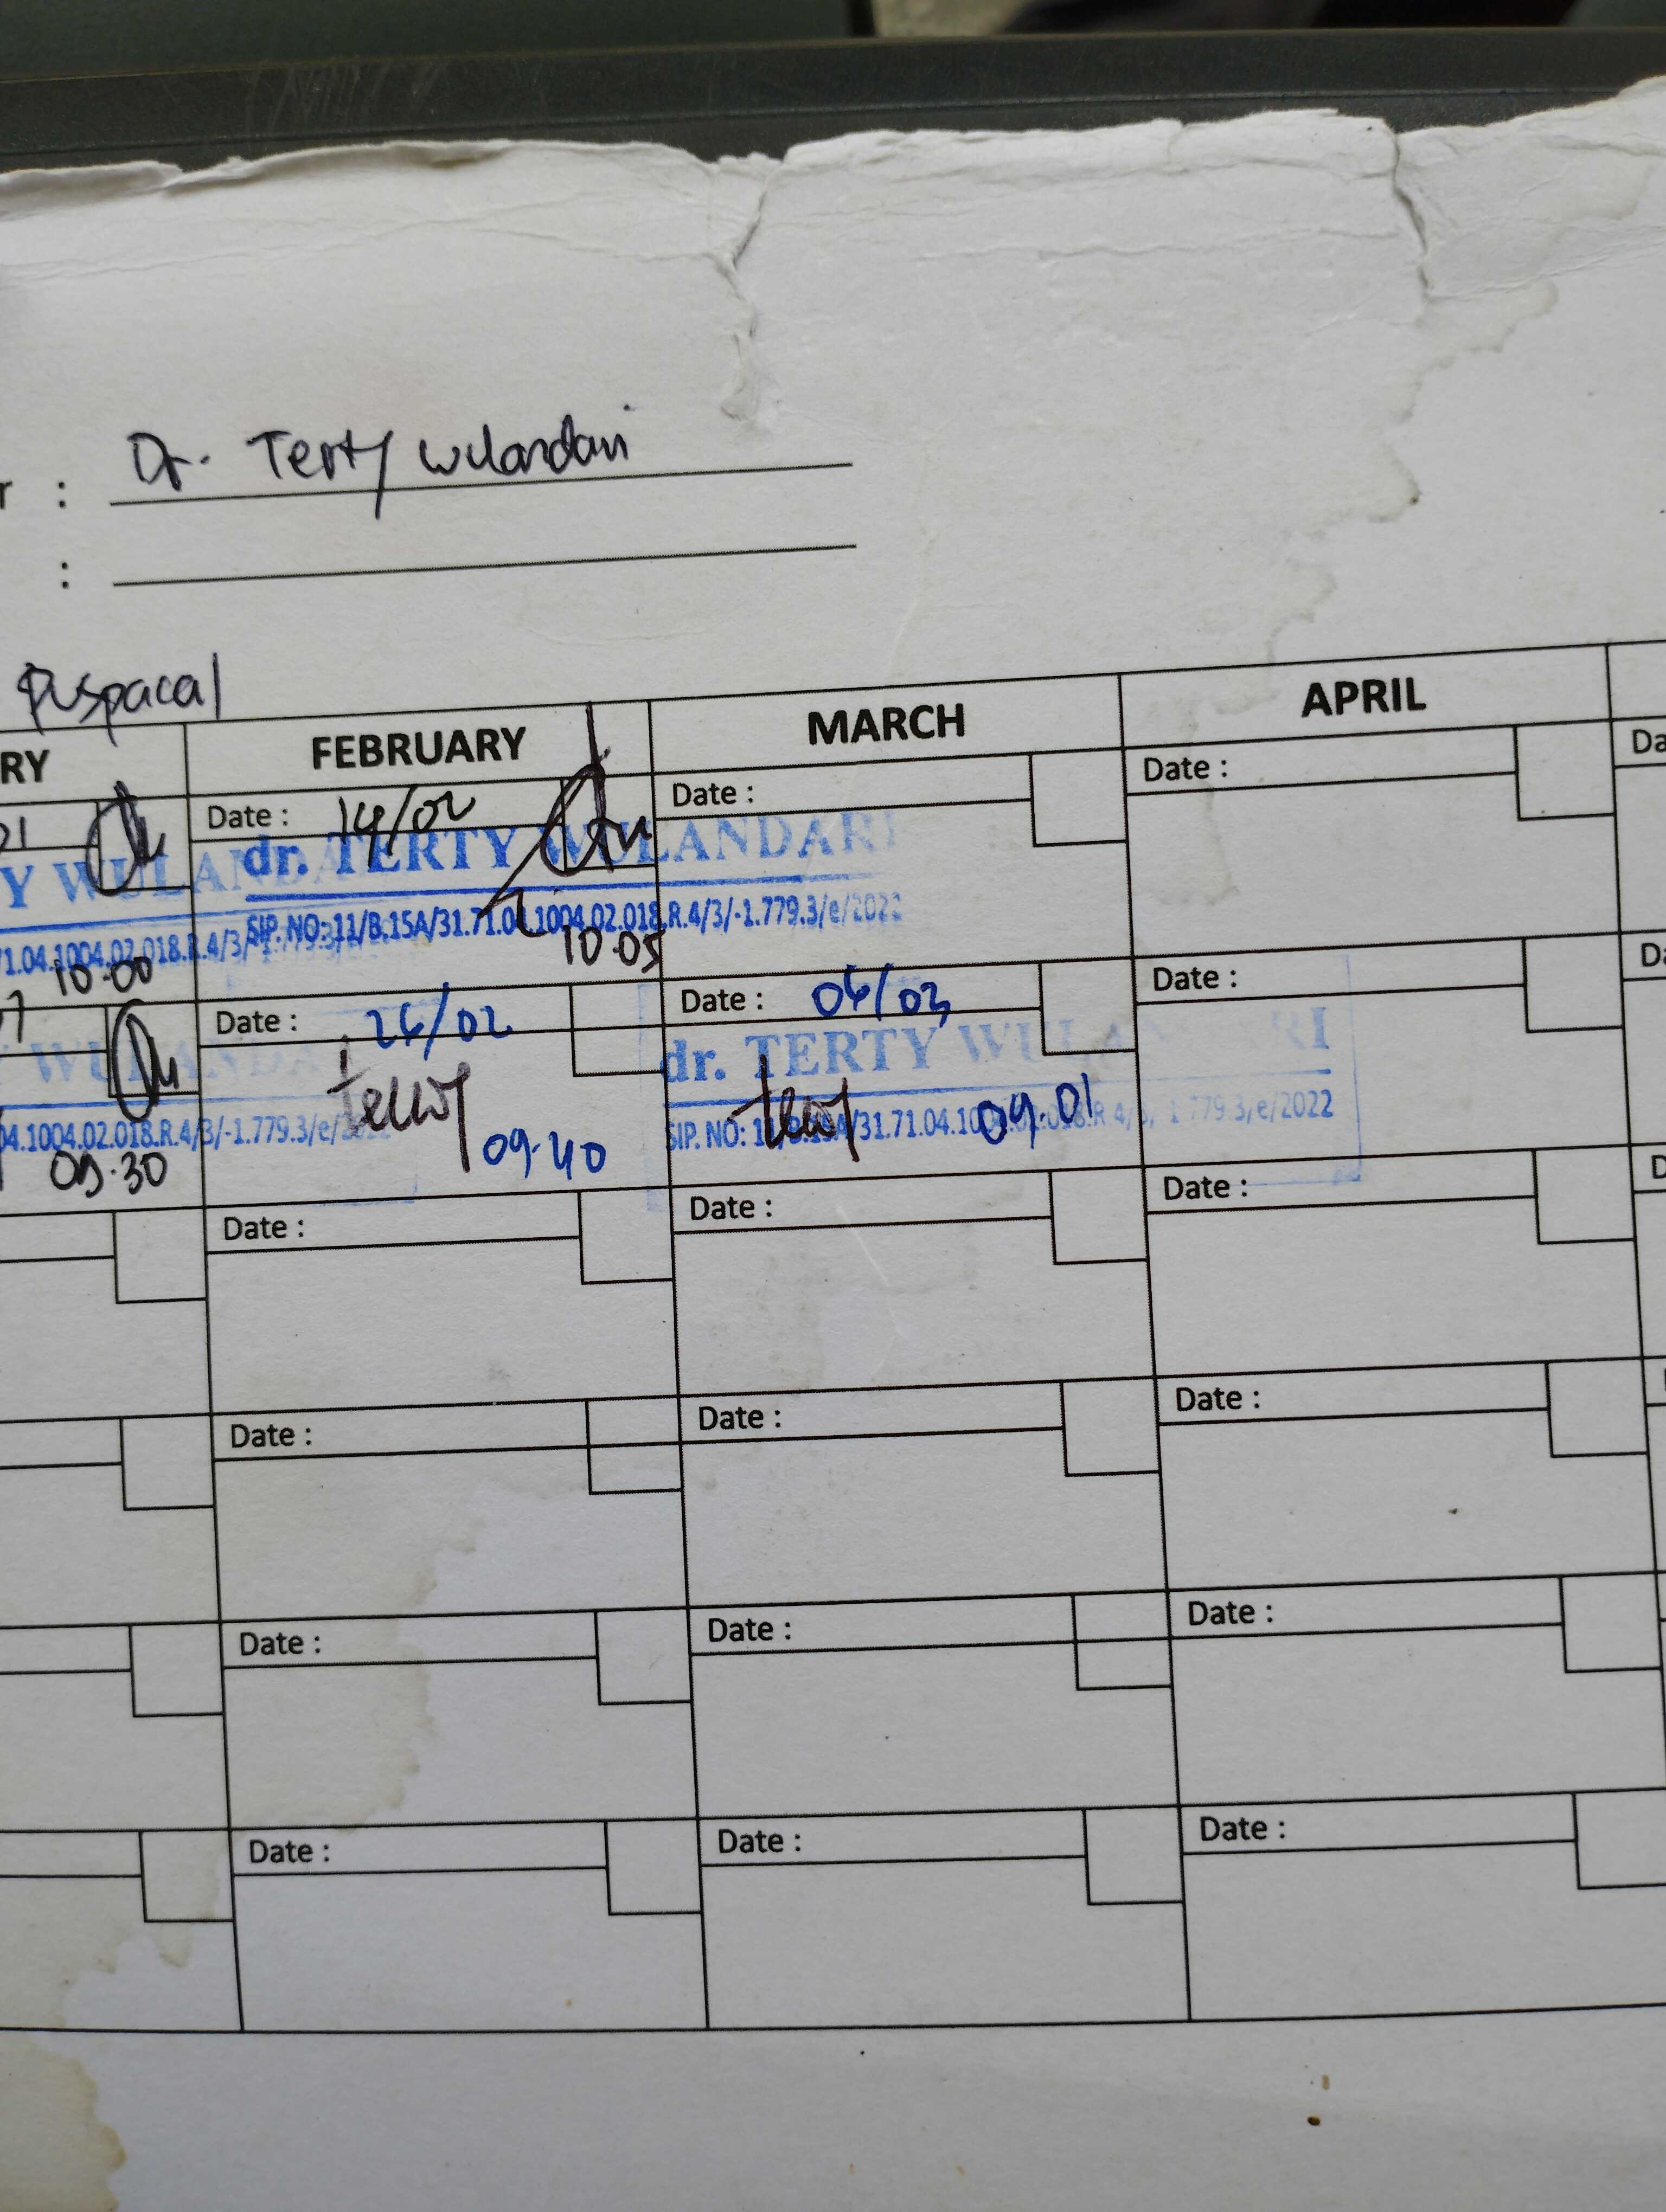 r : Dr. Terty Wulandari
:
Puspacal
RY FEBRUARY MARCH APRIL
Date : 14/02 Date : Date : Da
Y WULANDA dr. TERTY WULANDARI
71.04.1004.02.018.R.4/3/-1.779.3/e SIP. NO: 11/B.15A/31.71.04.1004.02.018.R.4/3/-1.779.3/e/2022
10.00 10.05
Date : 26/02 Date : 04/03 Date : Da
Y WULANDA dr. TERTY WULANDARI
04.1004.02.018.R.4/3/-1.779.3/e/2022 SIP. NO: 11/B.15A/31.71.04.1004.02.018.R.4/3/-1.779.3/e/2022
09.30 09.40 09.01
Date : Date : Date : D
Date : Date : Date :
Date : Date : Date :
Date : Date : Date :